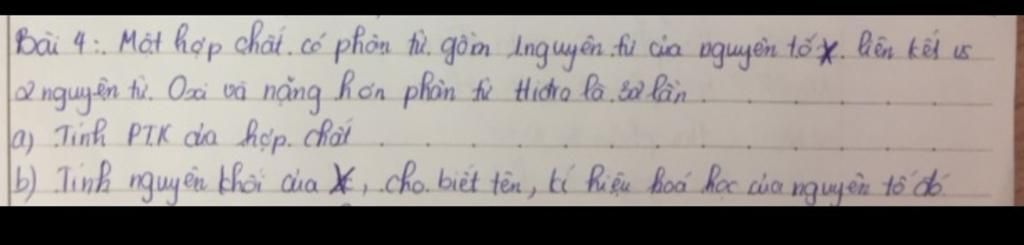 Bài 4:. Một hợp chất. có phân tử. gồm 1nguyên tử của nguyên tố X. liên kết vs
2 nguyên tử. Oxi và nặng hơn phân tử Hidro là. 32 lần
a) Tính PTK của hợp. chất
b) Tính nguyên khối của X, cho. biết tên, kí hiệu hoá học của nguyên tố đó.